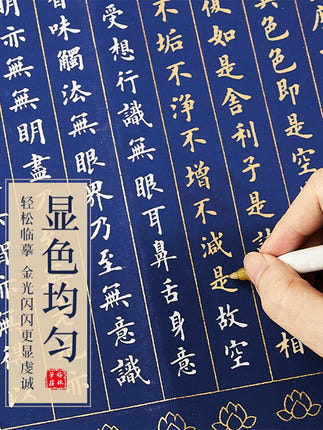 色色即是空
復如是舍利子是諸
相
不垢不淨不增不減是故空
受想行識無眼耳鼻舌身意
香味觸法無眼界乃至無意識
明亦無無明盡
显色均匀
轻松临摹 金光闪闪更显虔诚